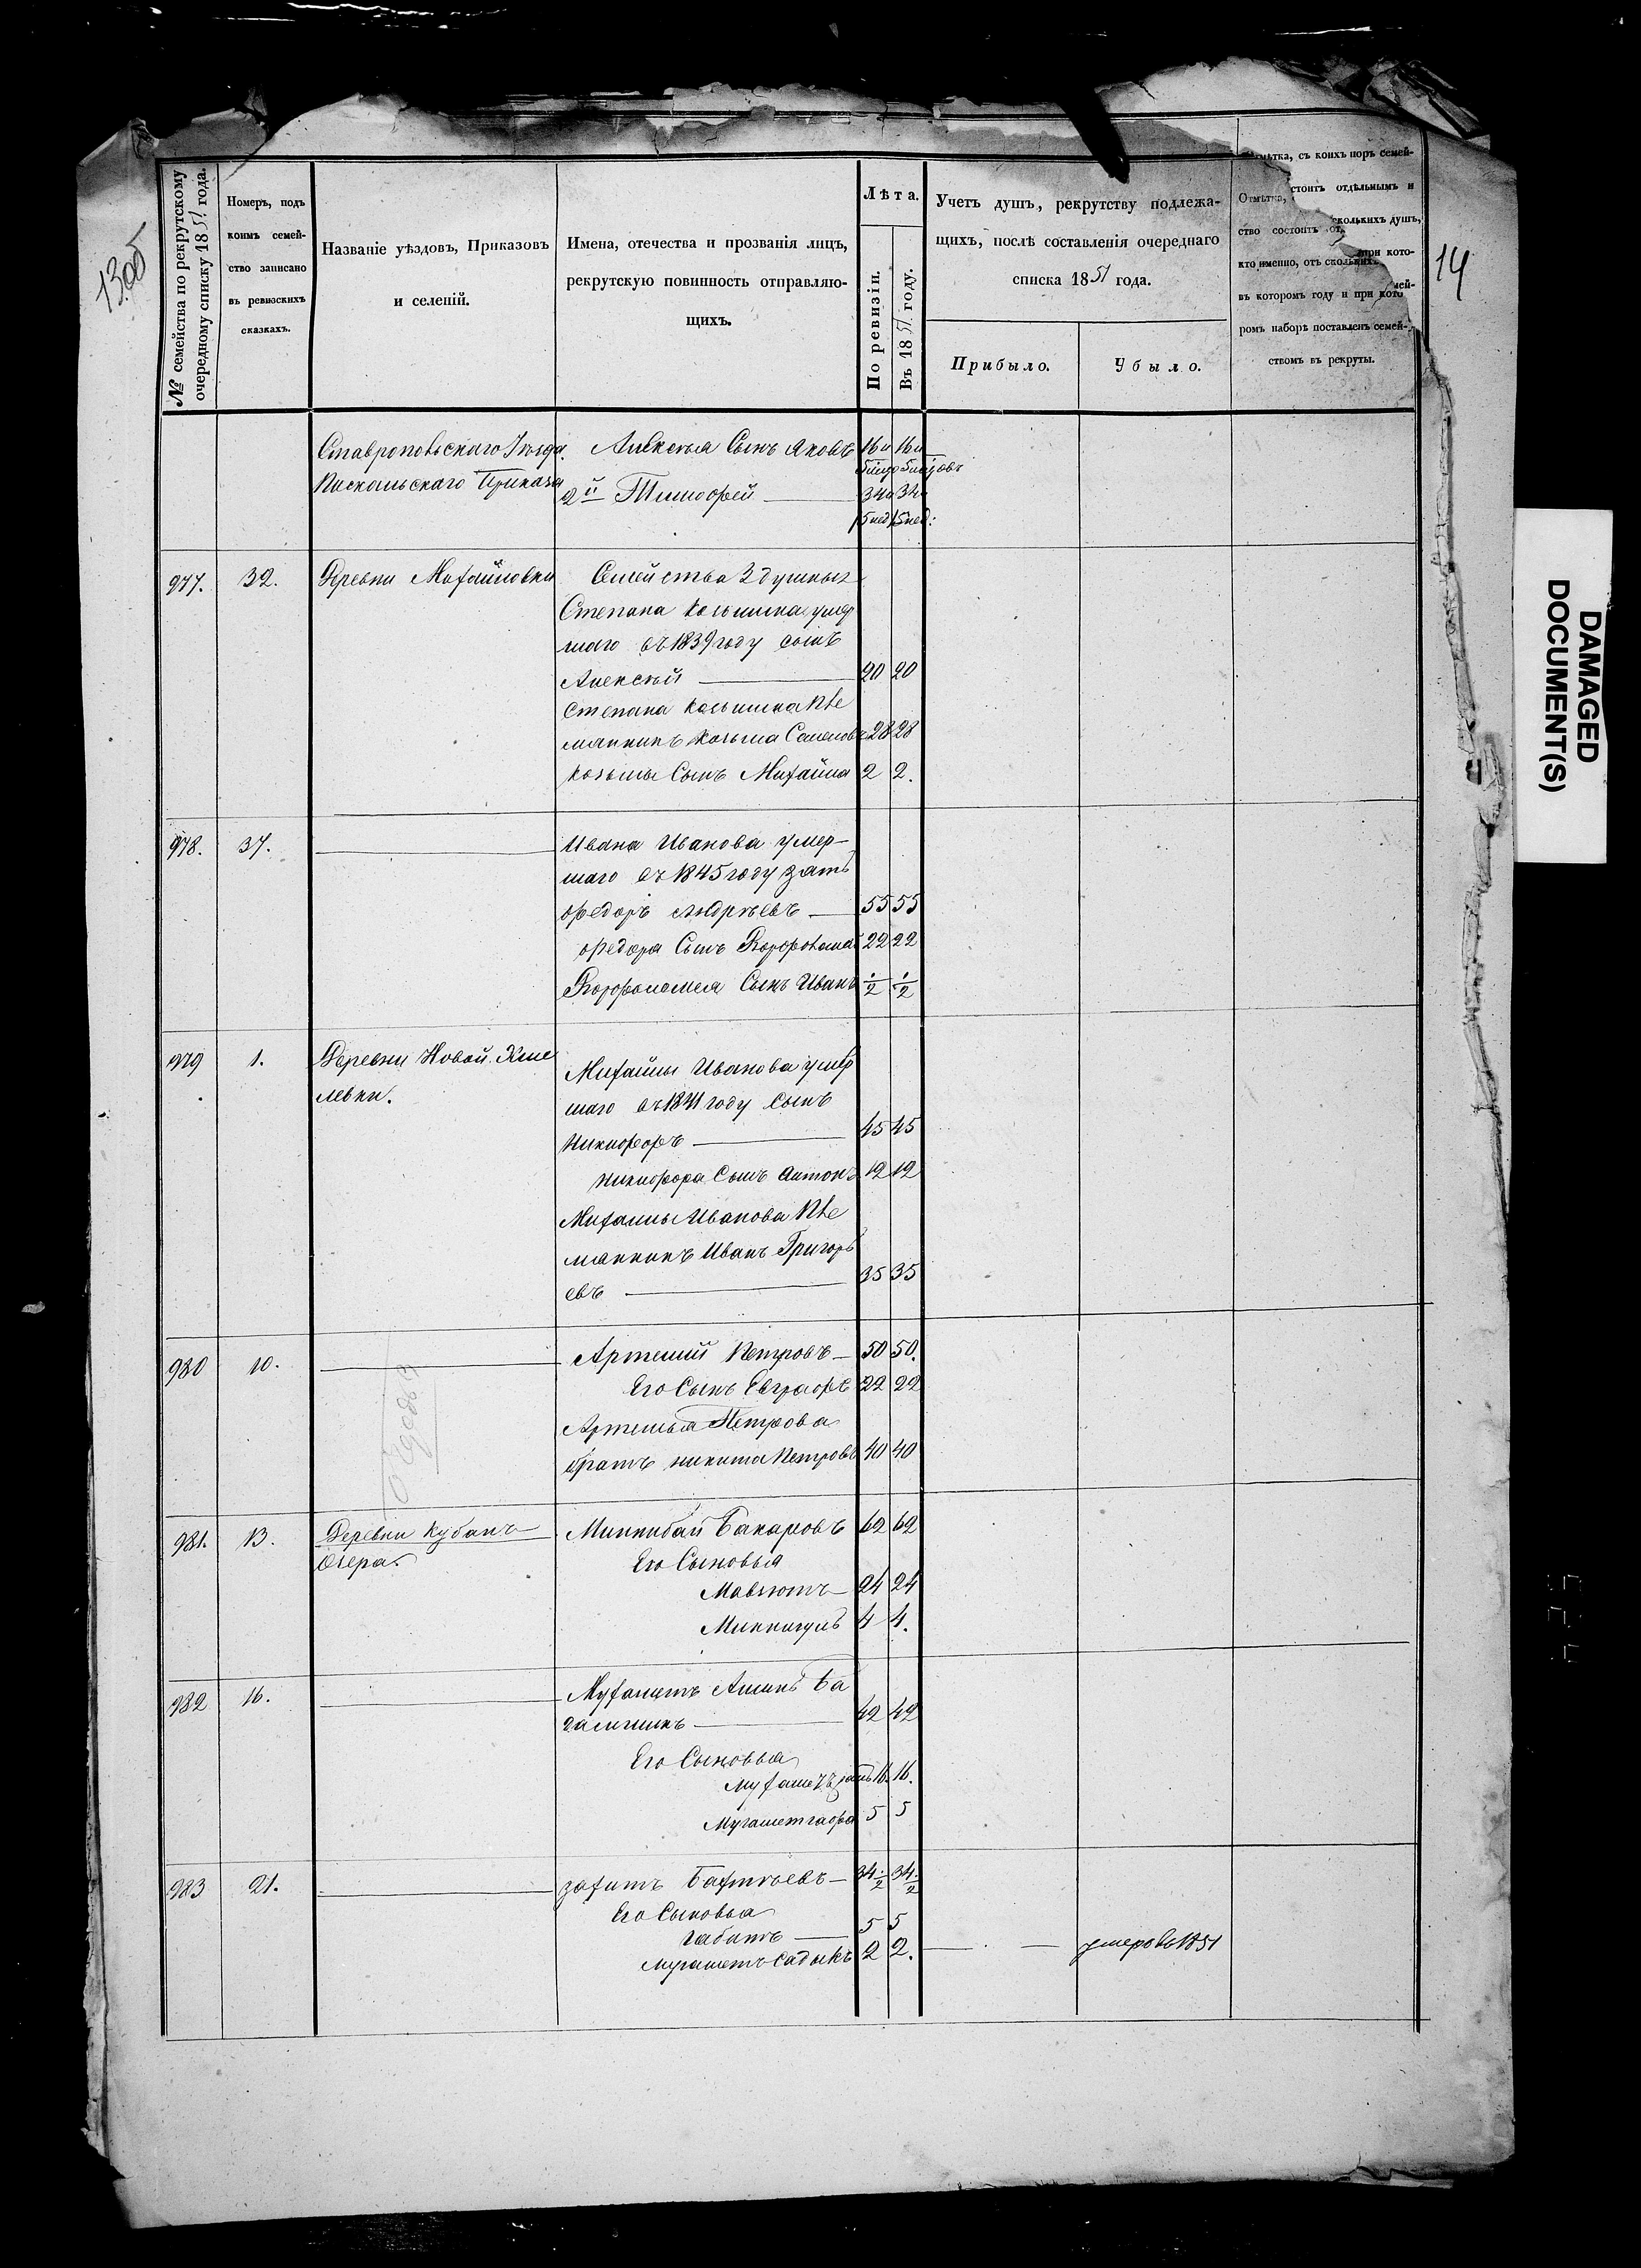 1300
14
№ семейства по рекрутскому очередному списку 1851 года.
Номеръ, подъ
коимъ семей-
ство записано
въ ревизскихъ
сказкахъ.
Названіе уѣздовъ, Приказовъ
и селеній.
Имена, отечества и прозванія лицъ,
рекрутскую повинность отправляю-
щихъ.
Лѣта.
По ревизіи.
Въ 1851 году.
Учетъ душъ, рекрутству подлежа-
щихъ, послѣ составленія очереднаго
списка 1851 года.
Прибыло.
Убыло.
съ коихъ поръ семей-
стоитъ отдѣльнымъ и
Отмѣтка,
сколькихъ душъ,
ство состоитъ от
при кото-
кто именно, отъ скольких
въ которомъ году и при кото
ромъ наборѣ поставленъ семей-
ствомъ въ рекруты.
Ставропольскаго Уѣзда Алексѣя Сынъ Яковъ 16 и 16 и
Пискальскаго Приказа
2й Тимофей 34 34
5 нед 5 нед:
977. 32. Деревни Михайловки Семейства 3 душныхъ
Степана Козьмина умер
шаго въ 1839 году сынъ
Алексѣй 20 20
Степана Козьмина Пле
мянникъ Козьма Семеновъ 28 28
Козьмы Сынъ Михайла 2 2.
978. 37. Ивана Иванова умер-
шаго въ 1845 году зять
Федоръ Андрѣевъ 55 55
Федора Сынъ Ворфоломей 22 22
Ворфоломея Сынъ Иванъ 1/2 1/2
979 1. Деревни Новой Хме
левки. Михайлы Иванова умер
шаго въ 1841 году Сынъ
Никифоръ 45 45
Никифора Сынъ Антонъ 12 12
Михайлы Иванова Пле
мянникъ Иванъ Григорь
евъ 35 35
980 10. Артемий Петровъ 50 50.
Его Сынъ Евграфъ 22 22
Артемья Петрова
братъ Никита Петровъ 40 40
981. 13. Деревни Кубанъ Миннибай Бакаровъ 62 62
Озера. Его Сыновья
Мавлютъ 24 24
Миннигуль 4 4.
982 16. Мухаметъ Аминъ Ба
42 42
Его Сыновья
16. 16.
5 5
983 21. Захитъ 34 1/2 34 1/2
Его Сыновья
Габитъ 5 5
Мухаметъ Садыкъ 2 2. умеръ въ 1851
DAMAGED
DOCUMENT(S)